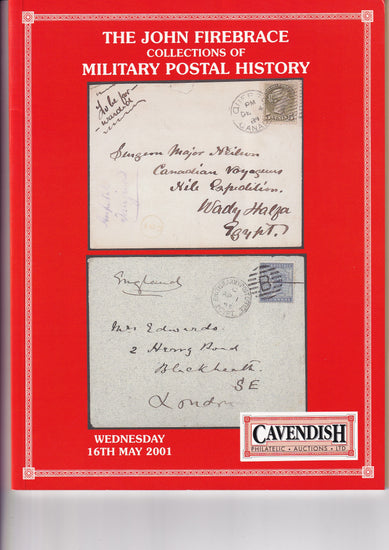 THE JOHN FIREBRACE
COLLECTIONS OF
MILITARY POSTAL HISTORY
To be for-
warded
PM
CANADA
Surgeon Major Neilson
Canadian Voyageurs
Nile Expedition.
Wady Halfa
Egypt.
England
Mrs Edwards.
2 Henry Road
Blackheath.
SE
London
WEDNESDAY
16TH MAY 2001
CAVENDISH
PHILATELIC • AUCTIONS • LTD